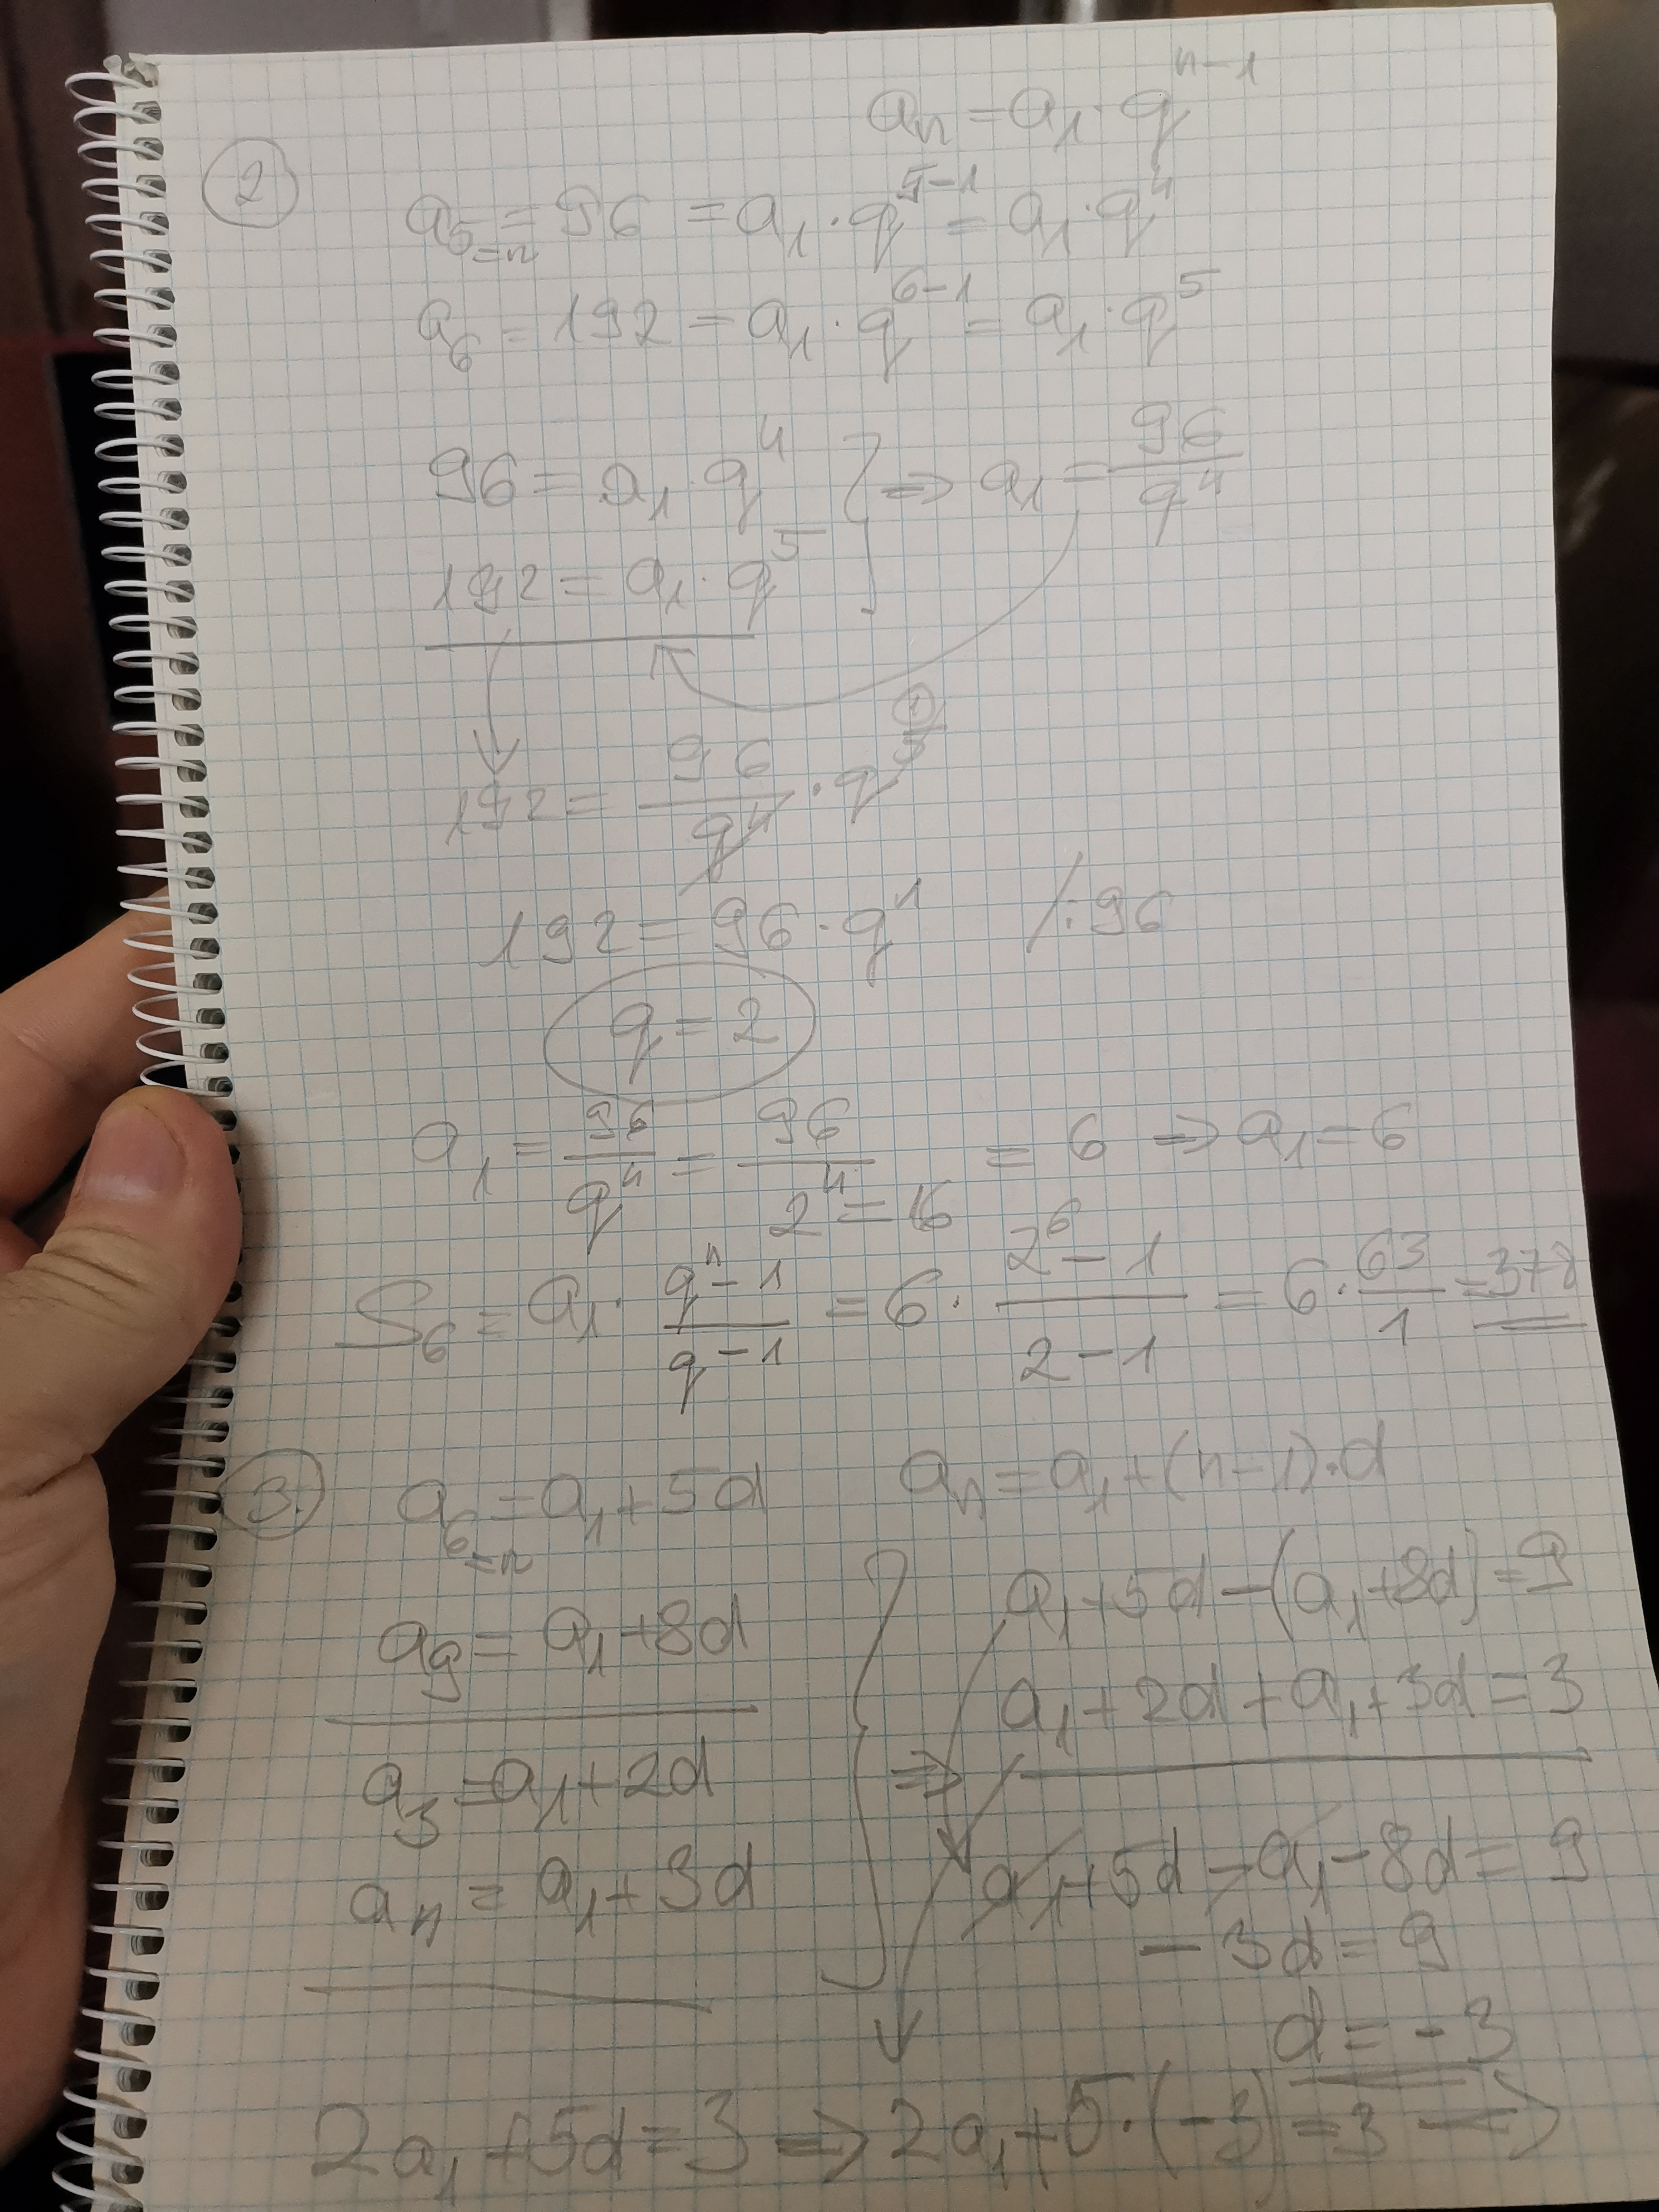 aₙ = a₁ · qⁿ⁻¹
② a₅₌ₙ = 96 = a₁ · q⁵⁻¹ = a₁ · q⁴
a₆ = 192 = a₁ · q⁶⁻¹ = a₁ · q⁵
96 = a₁ · q⁴ } ⇒ a₁ = 96/q⁴
192 = a₁ · q⁵
192 = 96/q⁴ · q⁵ ①
192 = 96 · q¹ /:96
q = 2
a₁ = 96/q⁴ = 96/2⁴=16 = 6 ⇒ a₁ = 6
S₆ = a₁ · (qⁿ-1)/(q-1) = 6 · (2⁶-1)/(2-1) = 6 · 63/1 = 378
③. a₆₌ₙ = a₁ + 5d aₙ = a₁ + (n-1)·d
a₉ = a₁ + 8d
a₃ = a₁ + 2d
a₄ = a₁ + 3d
} ⇒ a₁ + 5d - (a₁ + 8d) = 9
a₁ + 2d + a₁ + 3d = 3
a₁ + 5d - a₁ - 8d = 9
-3d = 9
d = -3
2a₁ + 5d = 3 ⇒ 2a₁ + 5·(-3) = 3 →